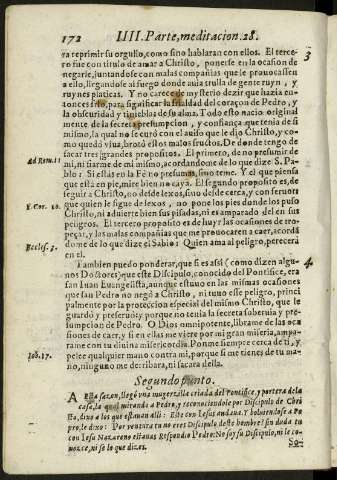 172 IIII. Parte, meditacion. 28.
ra reprimir su orgullo, como sino hablaran con ellos. El terce-
ro fue con titulo de amar a Christo, ponerse en la ocasion de
negarle, juntandose con malas compañias que le prouocassen
a ello, llegandose al fuego donde auia tulla de gente ruyn, y
ruynes platicas. Y no carece de mysterio dezir que hazia en-
tonces frio, para significar la frialdad del coraçon de Pedro, y
la obscuridad y tinieblas de su alma. Todo esto nacio original
mente de la secreta presumpcion, y confiança que tenia de si
mismo, la qual no se curò con el auiso que le dio Christo, y co-
mo quedò viua, brotò estos malos fructos. De donde tengo de
sacar tres grandes propositos. El primero, de no presumir de
Ad Rom. 11
mi, ni fiarme de mi mismo, acordandome de lo que dize S. Pa-
blo: Si estàs en la Fè no presumas, sino teme. Y el que piensa
que està en pie, mire bien no cayga. El segundo proposito es, de
seguir a Christo, no desde lexos, sino desde cerca, y con feruor:
1. Cor. 10.
que quien le sigue de lexos, no pone los pies donde los puso
Christo, ni aduierte bien sus pisadas, ni es amparado del en sus
peligros. El tercero proposito es de huyr las ocasiones de tro-
peçar, y las malas compañias que me prouocaren a caer, acordã
Eccles. 3.
dome de lo que dize el Sabio: Quien ama al peligro, perecerà
en el.
3
Tambien puedo ponderar, que si es assi (como dizen algu-
4
nos Doctores) que este Discipulo, conocido del Pontifice, era
san Iuan Euangelista, aunque estuuo en las mismas ocasiones
que san Pedro no negò a Christo, ni tuuo esse peligro, princi
palmente por la proteccion especial del mismo Christo, que le
guardò y preseruò; y porque no tenia la secreta soberuia y pre-
sumpcion de Pedro. O Dios omnipotente, librame de las oca
siones de caer, y si en ellas me viere por mi gran miseria, ampa-
rame con tu diuina misericordia. Ponme siempre cerca de ti, y
Iob. 17.
pelee qualquier mano contra mi, porque si me tienes de tu ma-
no, ninguno me derribara, ni sacara della.
Segundo punto.
A Esta sazon, llegò vna mugerzilla criada del Pontifice, y portera de la
casa, la qual mirando a Pedro, y reconociendole por Discipulo de Chri
sto, dixo a los que estauan alli: Este con Iesus andaua. Y boluiendose a Pe
dro, le dixo: Por ventura tu no eres Discipulo deste hombre? sin duda tu
con Iesu Nazareno estauas. Respondio Pedro: No soy su Discipulo, ni le co-
nozco, ni sè lo que dizes.
So-